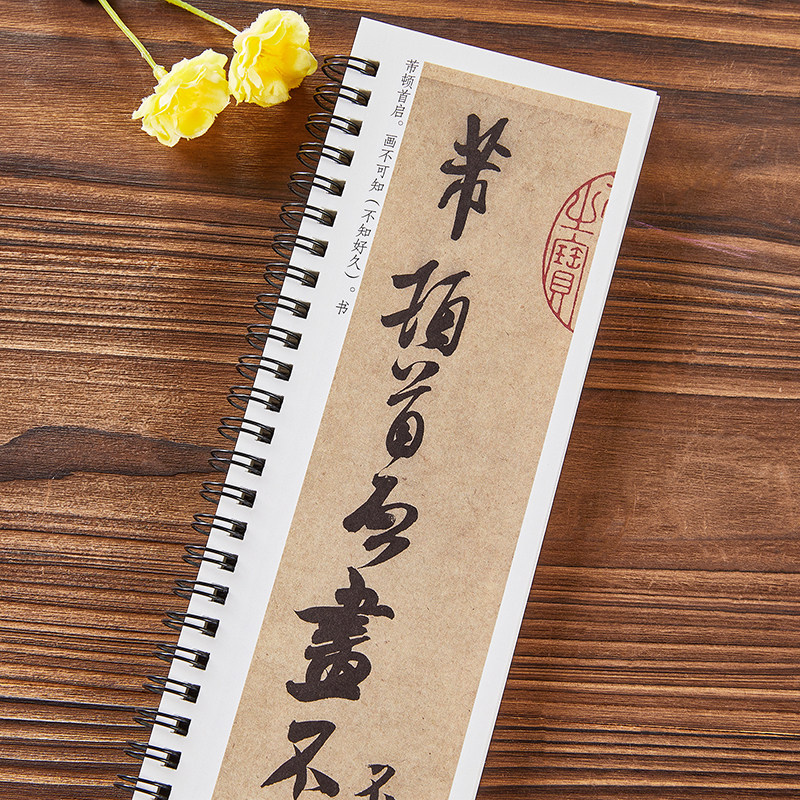 芾顿首启。画不可知（不知好久）。书
芾頓首启畫不
之寶